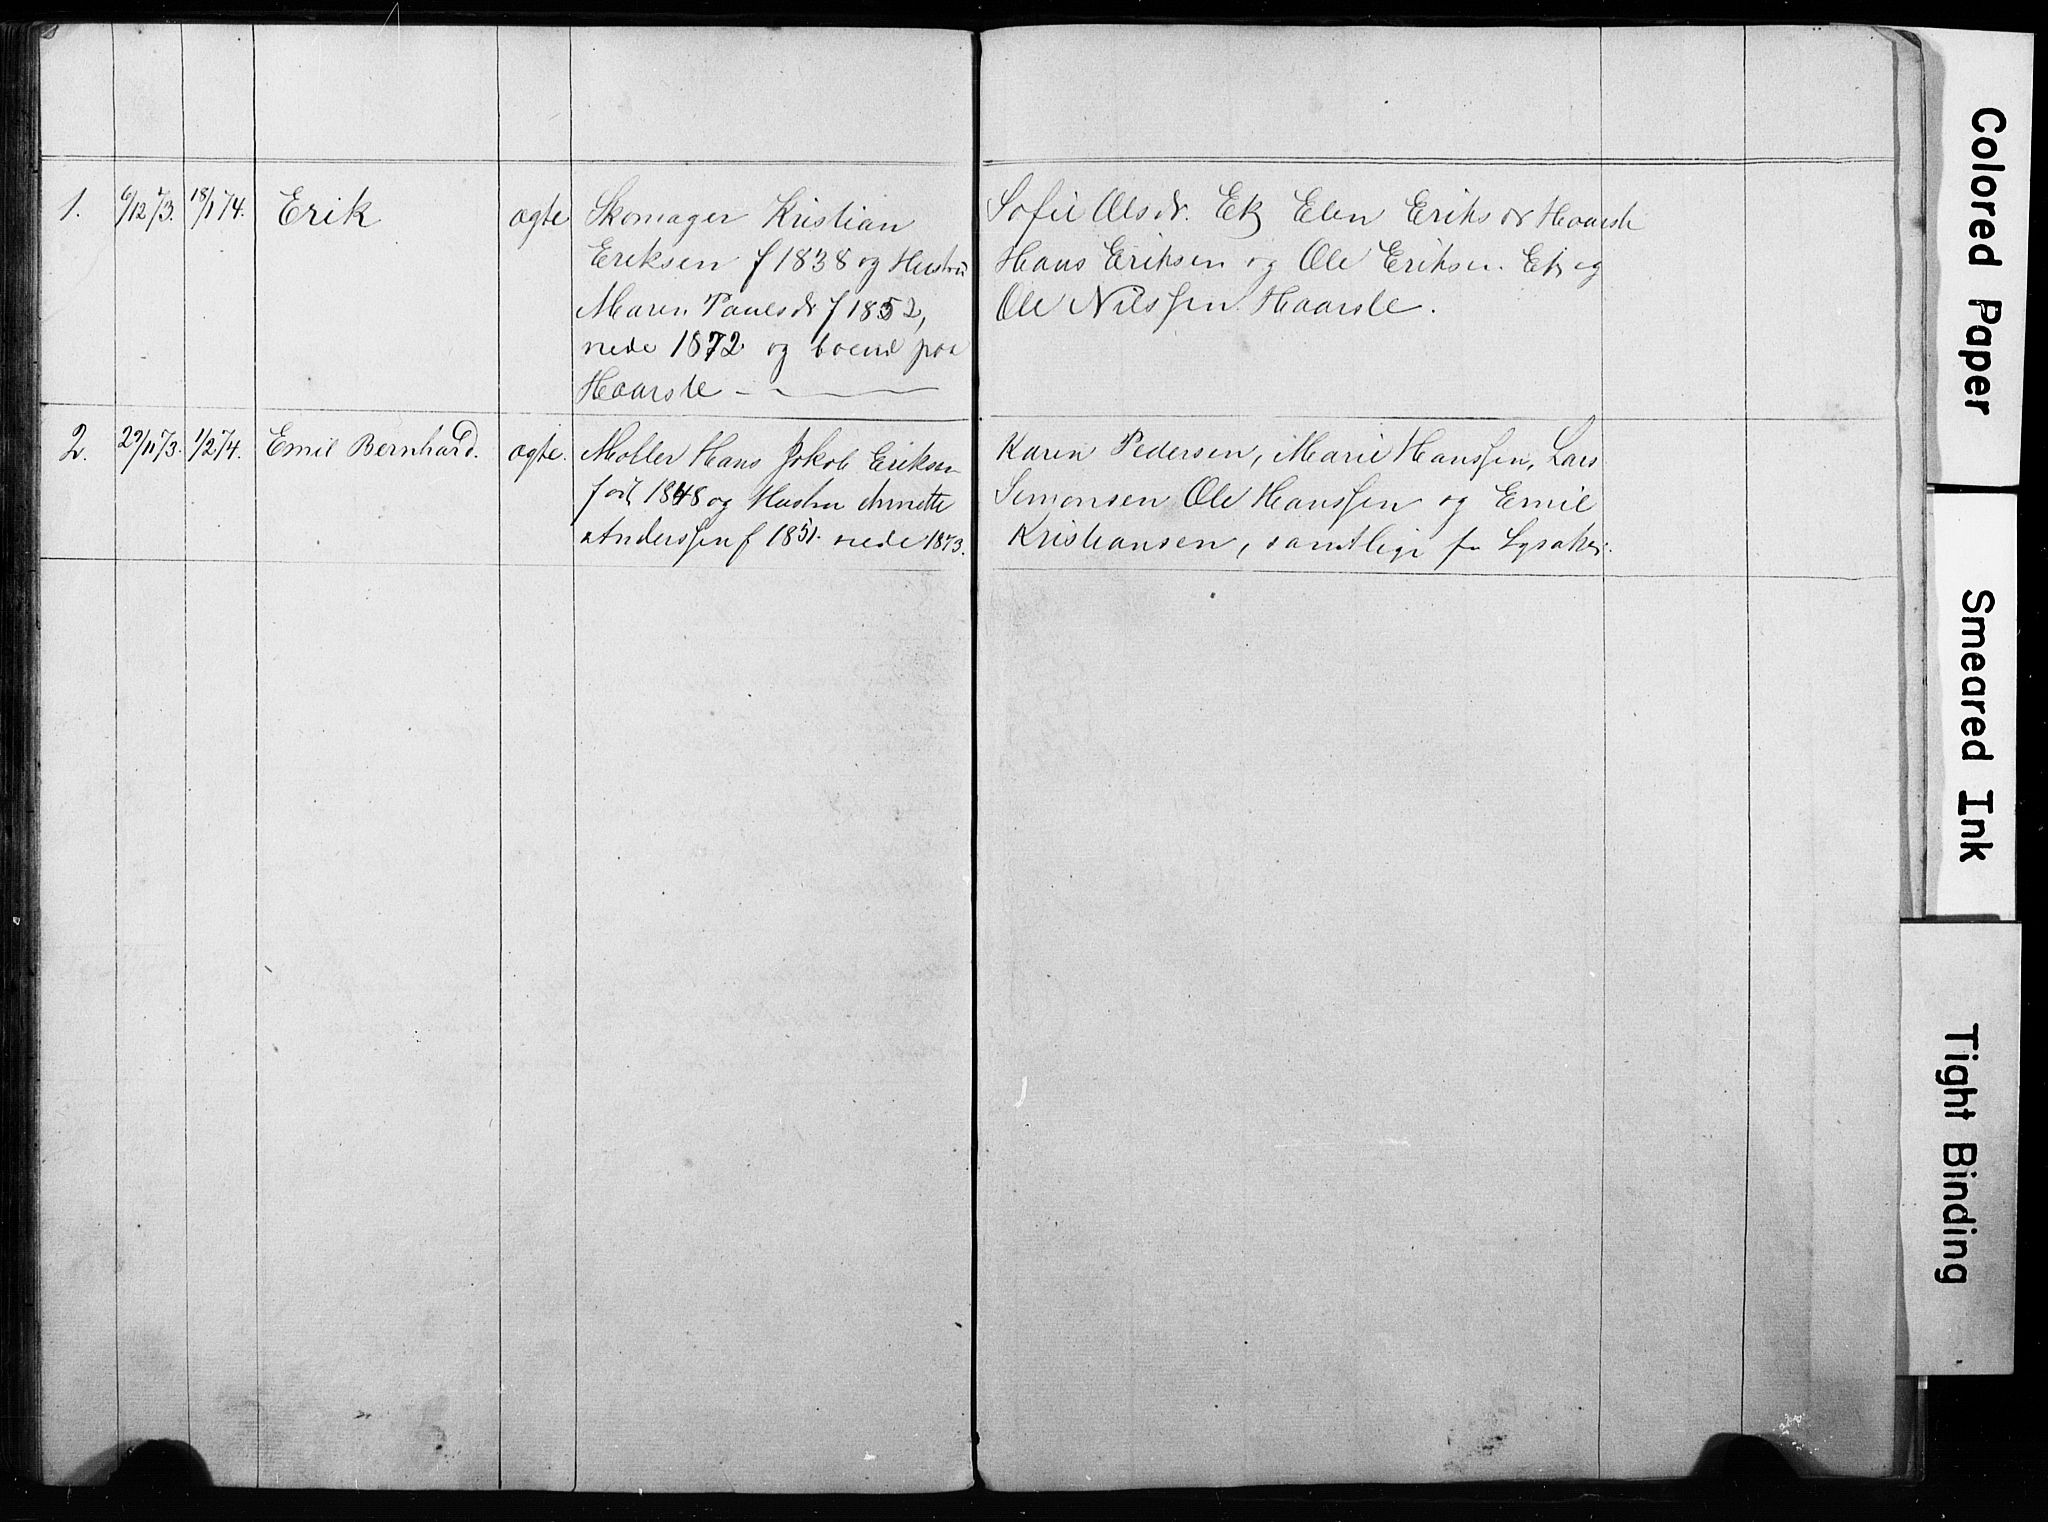 1. 6/12 73. 18/1 74. Erik ægte Skomager Kristian
Eriksen f 1838 og Hustru
Maren Paulsdr f 1852,
viede 1872 og boend paa
Haarste
Sofie Olsdr. Ek Elen Eriksdr Haarste
Hans Eriksen og Ole Eriksen. Ek og
Ole Nilssen Haarste.
2. 29/11 73. 1/2 74. Emil Bernhard. ægte. Møller Hans Jakob Eriksen
født 1848 og Hustru
Anderssen f 1851. viede 1873.
Karen Pedersen, Marie Hanssen, Lars
Simonsen Ole Hanssen og Emil
Kristiansen, samtlige fr Lysaker.
Colored Paper
Smeared Ink
Tight Binding